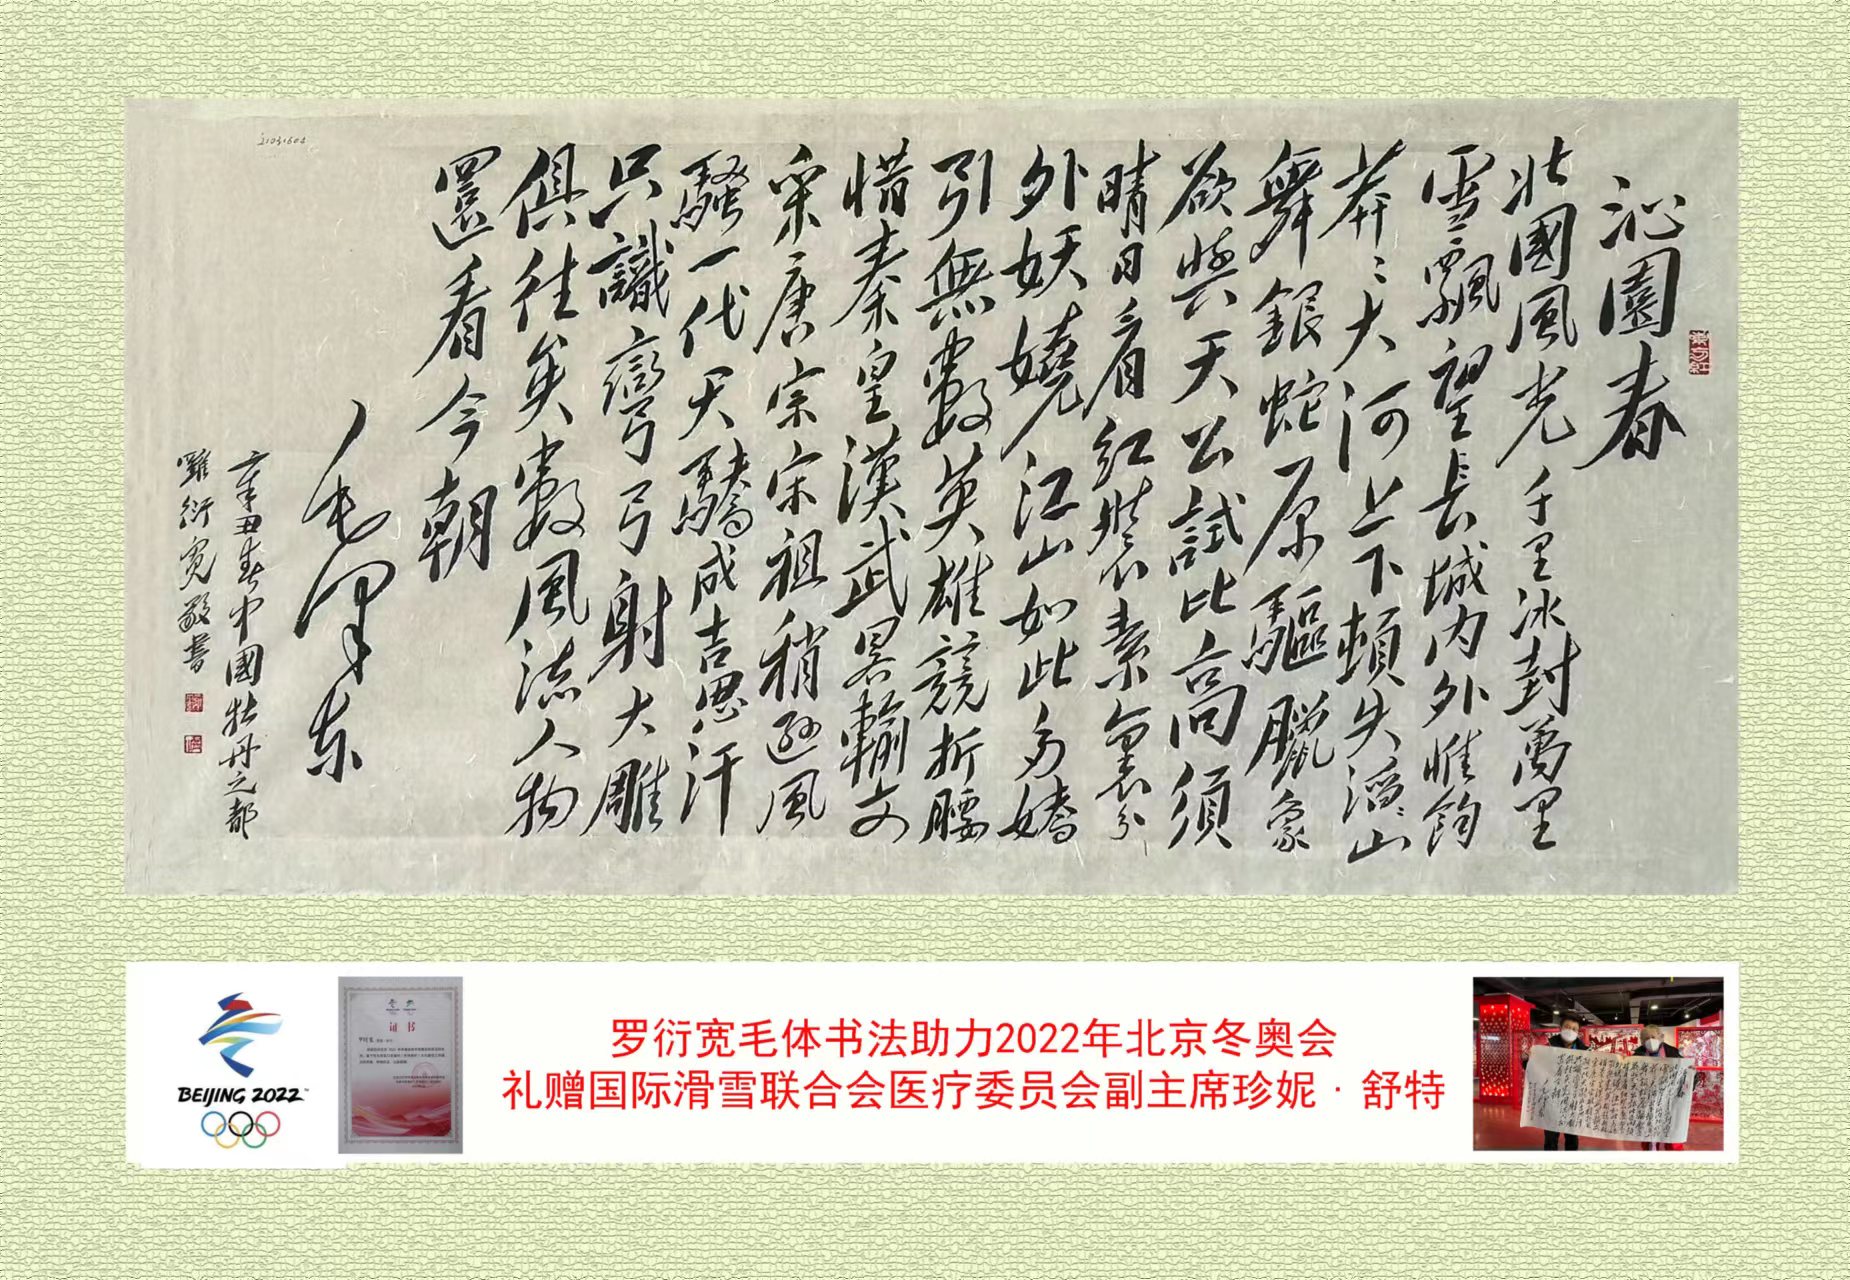 沁園春
北國風光千里冰封萬里
雪飄望長城内外惟餘
莽〻大河上下頓失滔〻山
舞銀蛇原驅臘象
欲與天公試比高須
晴日看紅裝素裹分
外妖嬈江山如此多嬌
引無數英雄競折腰
惜秦皇漢武畧輸文
采唐宗宋祖稍遜風
騷一代天驕成吉思汗
只識彎弓射大雕
俱往矣數風流人物
還看今朝
毛澤東
辛丑春中國牡丹之都
羅衍寬敬書
BEIJING 2022
证书
罗衍宽毛体书法助力2022年北京冬奥会
礼赠国际滑雪联合会医疗委员会副主席珍妮·舒特